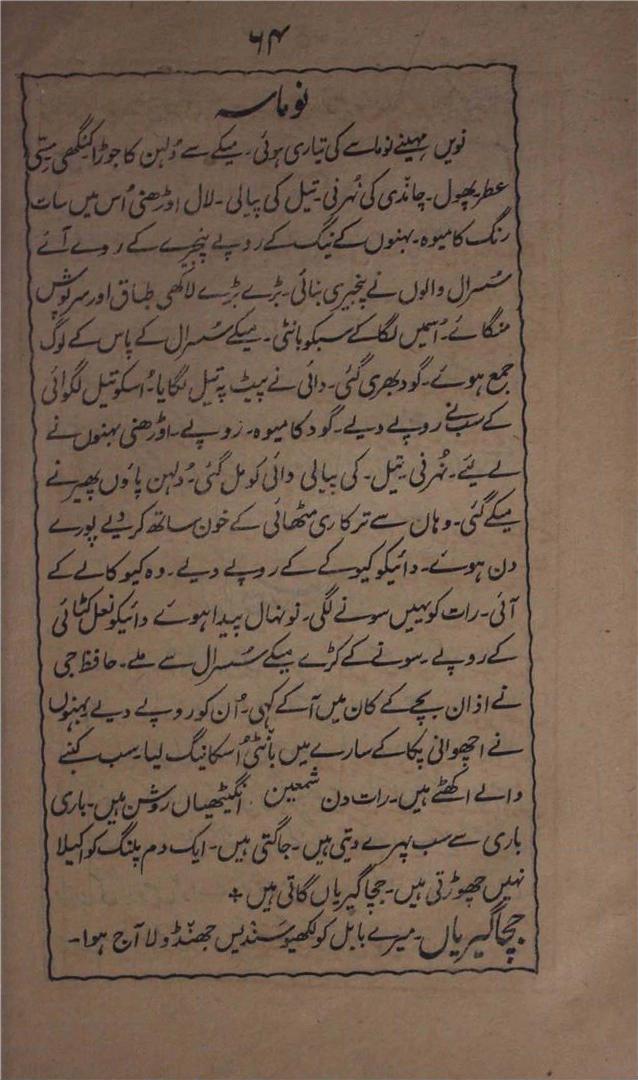 ۶۴
نوماسہ
نویں مہینے نوماسے کی تیاری ہوئی۔ میکے سے دُلہن کا جوڑا کنگھی مِسّی
عطر پھول۔ چاندی کی نہرنی۔ تیل کی پیالی۔ لال اوڑھنی اُس میں سات
رنگ کا میوہ۔ بہنوں کے نیگ کے روپے پنجیرے کے روپے آئے
سُسرال والوں نے پنجیری بنائی۔ بڑے بڑے لاکھی طباق اور سرپوش
منگائے۔ اُسمیں لگا کے سب کو بانٹی۔ میکے سُسرال کے پاس کے لوگ
جمع ہوئے۔ گود بھری گئی۔ دائی نے پیٹ پہ تیل لگایا۔ اُسکو تیل لگوائی
کے سب نے روپے دیے۔ گود کا میوہ۔ روپے۔ اوڑھنی بہنوں نے
لے لیئے۔ نہرنی۔ تیل۔ کی پیالی دائی کو مل گئی۔ دُلہن پاؤں پھیرنے
میکے گئی۔ وہان سے ترکاری مٹھائی کے خون ساتھ کر دیے پورے
دن ہوئے۔ دائیکو کیوکے کے روپے دیے۔ وہ کیو کالے کے
آئی۔ رات کو یہیں سونے لگی۔ نونہال پیدا ہوئے دائیکو نعل کٹائی
کے روپے۔ سونے کے کڑے میکے سُسرال سے ملے۔ حافظ جی
نے اذان بچے کے کان میں آکے کہی۔ اُن کو روپے دیے بہنوں
نے اچھوانی پکا کے سارے میں بانٹی اُسکا نیگ لیا۔ سب کنبے
والے اکھٹے ہیں۔ رات دن شمعین انگیٹھیاں روشن ہیں۔ باری
باری سے سب پہرے دیتی ہیں۔ جاگتی ہیں۔ ایک دم پلنگ کو اکیلا
نہیں چھوڑتی ہیں۔ ججا گیریاں گاتی ہیں ٭
ججا گیریاں۔ میرے بابل کو لکھیو سَندیس جھنڈولا آج ہوا۔